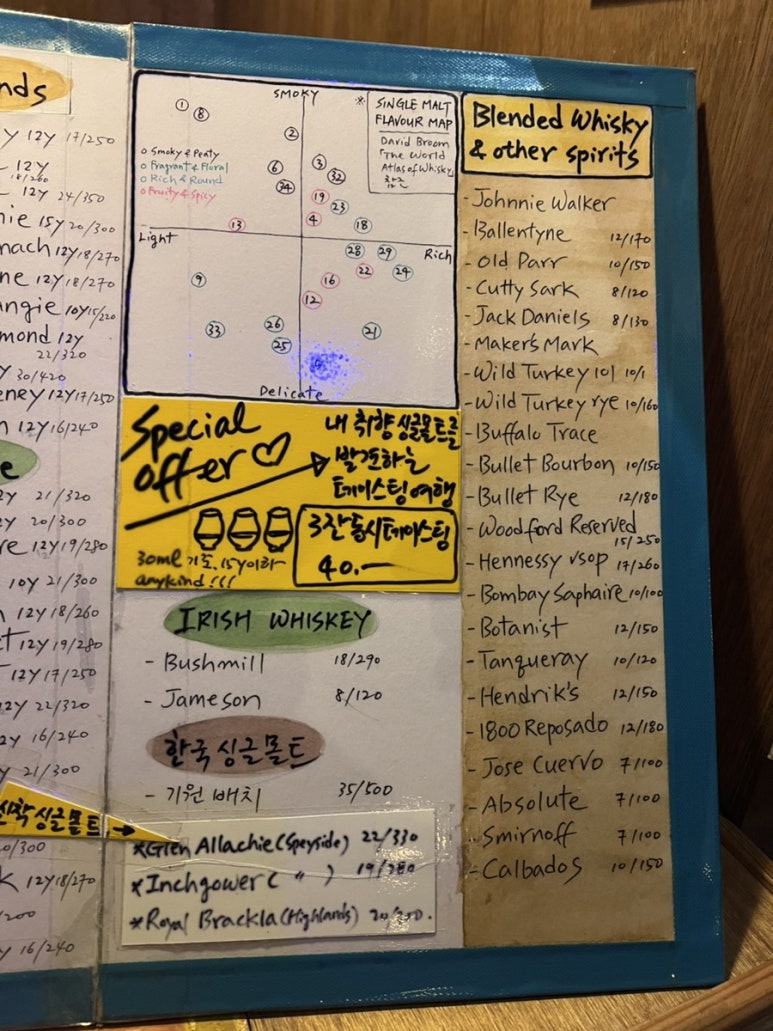 nds
Y 12Y 17/250
12Y
18/260
12Y 24/350
nie 15Y 20/300
mach 12Y 18/270
ne 12Y 18/270
angie 10Y 15/220
mond 12Y
22/320
Y 30/420
eney 12Y 17/250
n 12Y 16/240
e
2Y 21/320
Y 20/300
re 12Y 19/280
10Y 21/300
n 12Y 18/260
et 12Y 19/280
r 12Y 17/250
12Y 22/320
2Y 16/240
Y 21/300
싱글몰트 →
0/300
k 12Y 18/270
/200
Y 16/240
SMOKY
* SINGLE MALT
FLAVOUR MAP
David Broom
「The World
Atlas of Whisky」
참조
o Smoky & Peaty
o Fragrant & Floral
o Rich & Round
o Fruity & Spicy
1 8
2
6 3 32
34 19 23
4 18
13
Light
Rich
28 29
9 16 22 24
12
33 26 21
25
Delicate
Special
offer ♡
내 취향 싱글몰트를
발견하는
테이스팅 여행
3잔 동시 테이스팅
40.—
30ml 기준, 15y 이하
any kind!!!
IRISH WHISKEY
- Bushmill 18/290
- Jameson 8/120
한국 싱글몰트
- 기원 배치 35/500
*Glen Allachie (Speyside) 22/330
*Inchgower ( " ) 19/280
*Royal Brackla (Highlands) 20/300.
Blended Whisky
& other spirits
- Johnnie Walker
- Ballentyne 12/170
- Old Parr 10/150
- Cutty Sark 8/120
- Jack Daniels 8/130
- Maker's Mark
- Wild Turkey 101 10/1
- Wild Turkey rye 10/160
- Buffalo Trace
- Bullet Bourbon 10/150
- Bullet Rye 12/180
- Woodford Reserved
15/250
- Hennessy VSOP 17/260
- Bombay Saphaire 10/100
- Botanist 12/150
- Tanqueray 10/120
- Hendrik's 12/150
- 1800 Reposado 12/180
- Jose Cuervo 7/100
- Absolute 7/100
- Smirnoff 7/100
- Calbados 10/150